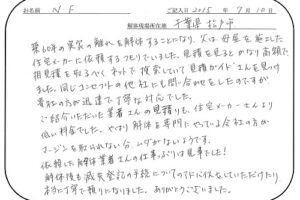 お名前 N F ご記入日 2015 年 7 月 10 日
解体現場所在地 千葉県松戸市
築60年の実家の離れを解体することになり、父は母屋を施工した
住宅メーカーに依頼するつもりでいました。見積を見るとかなり高額で
相見積を取るべく、ネットで検索していて見積ガイドさんを見つけ
ました。同じコンセプトの他社にも問い合わせをしたのですが
貴社の方が迅速で丁寧な対応でした。
ご紹介いただいた業者さんの見積りも、住宅メーカーさんより
低い料金でした。やはり解体を専門にやっている会社の方が
マージンを取られない分、ムダがないようです。
依頼した解体業者さんの仕事ぶりは見事でした！
解体後も滅失登記の手続についてアドバイスをしていただけたり
本当に丁寧で頼りになりました。ありがとうございました。